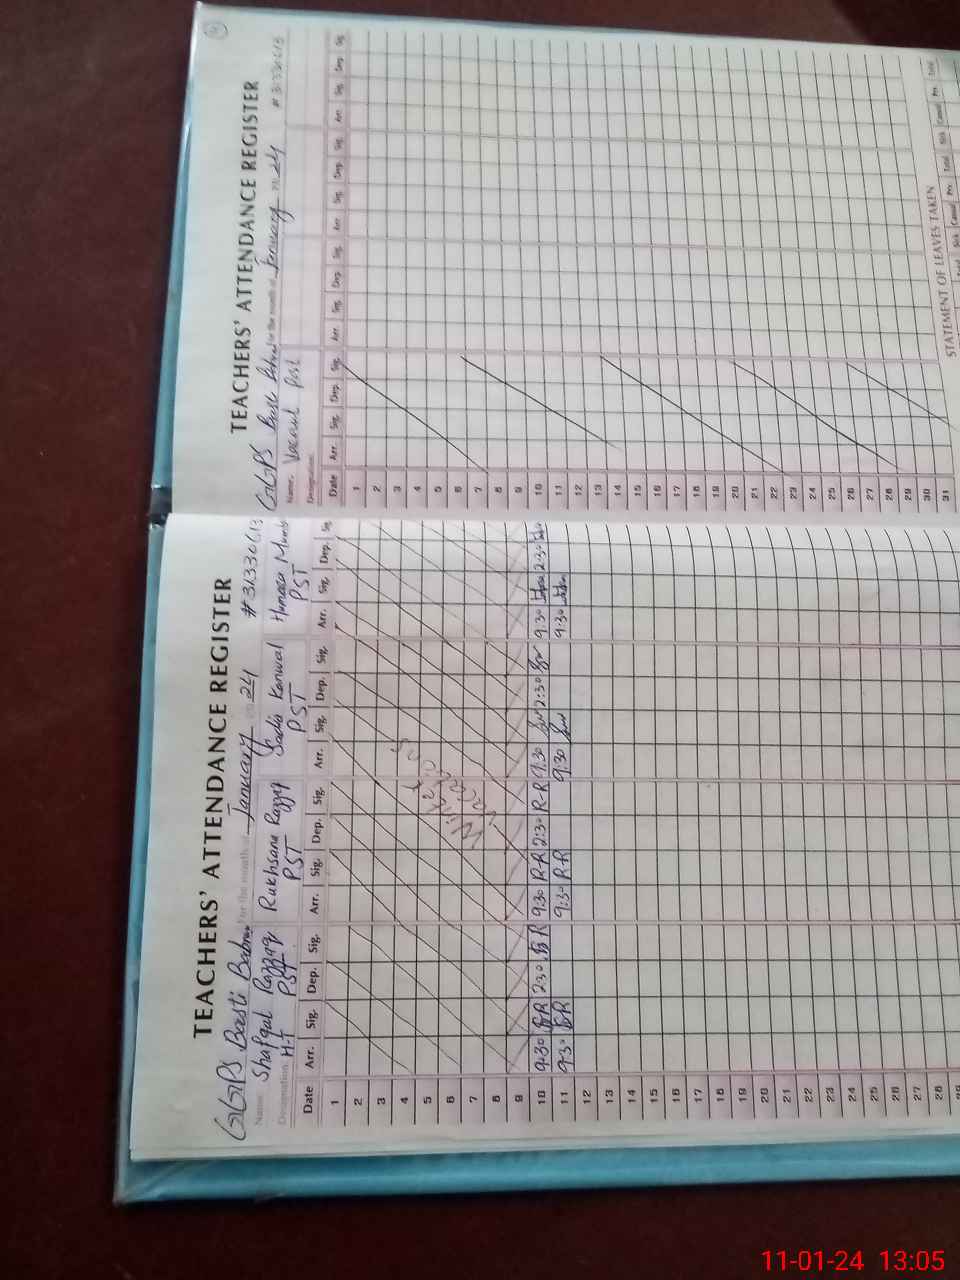 TEACHERS' ATTENDANCE REGISTER
GGPS Basti For the month of January 20 24 # 31330613
Name: Shafqat Razzaq Rukhsana Razzaq Sadia Kanwal Humaira
Designation: H-T PST PST PST PST
Date Arr. Sig. Dep. Sig. Arr. Sig. Dep. Sig. Arr. Sig. Dep. Sig. Arr. Sig. Dep. Sig.
1
2
3
4
5
6
7
8
9
Winter
10 9:30 S-R 2:30 S-R 9:30 R-R 2:30 R-R 9:30 2:30 9:30 2:30
11 9:30 S-R 9:30 R-R 9:30 9:30
12
13
14
15
16
17
18
19
20
21
22
23
24
25
26
27
28
29
TEACHERS' ATTENDANCE REGISTER
GGPS Basti For the month of January 20 24 # 31330613
Name: Vacant Post
Designation:
Date Arr. Sig. Dep. Sig. Arr. Sig. Dep. Sig. Arr. Sig. Dep. Sig. Arr. Sig. Dep. Sig.
1
2
3
4
5
6
7
8
9
10
11
12
13
14
15
16
17
18
19
20
21
22
23
24
25
26
27
28
29
30
31
STATEMENT OF LEAVES TAKEN
Total Sick Casual Prv. Total Sick Casual Prv. Total
11-01-24 13:05